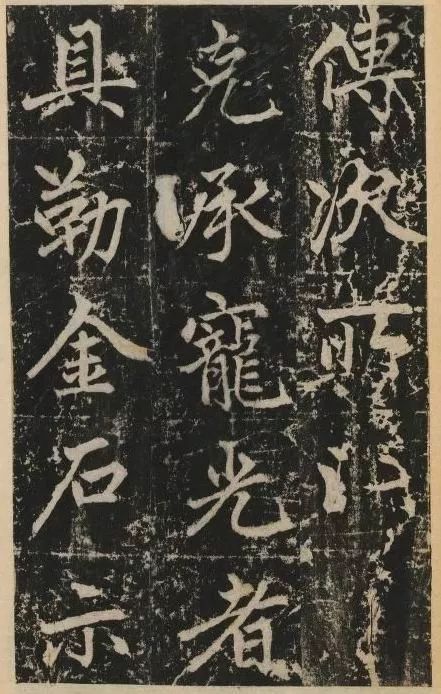 傳次
克承寵光者
具勒金石示